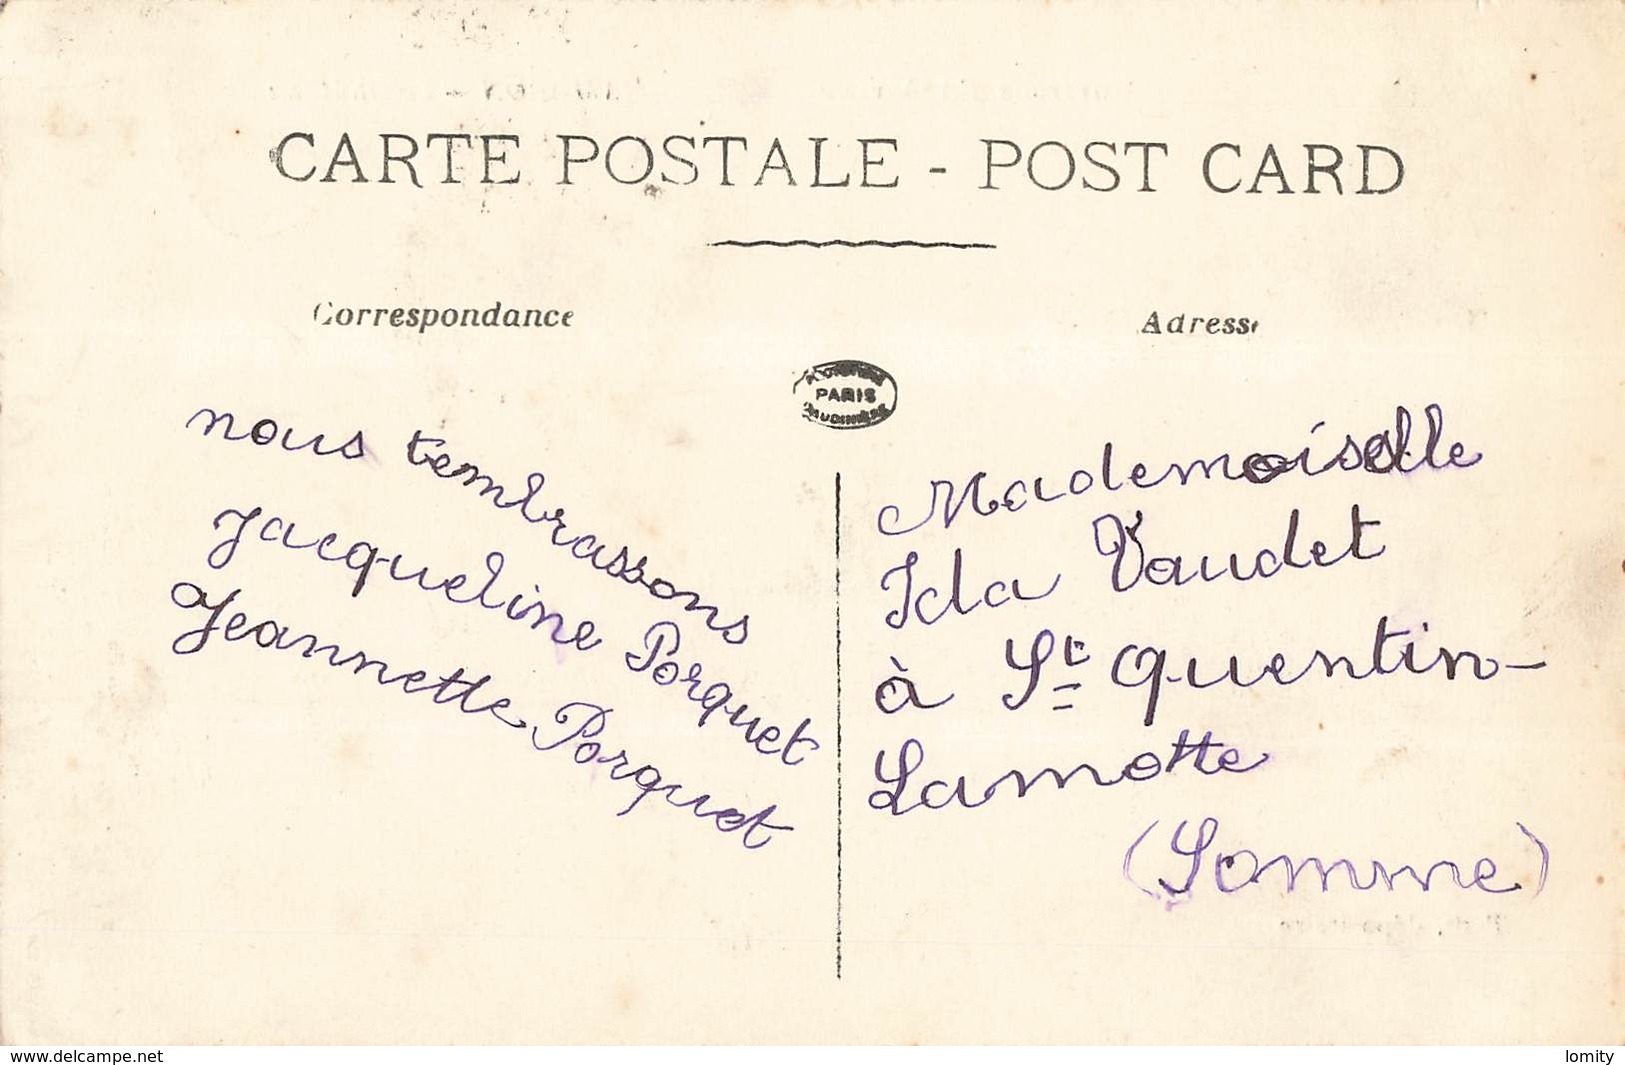 CARTE POSTALE - POST CARD
Correspondance
Adresse
PARIS
nous tembrassons
Jacqueline Porquet
Jeannette Porquet
Mademoiselle
Ida Vaudet
à St Quentin-
Lamotte
(Somme)
www.delcampe.net
lomity